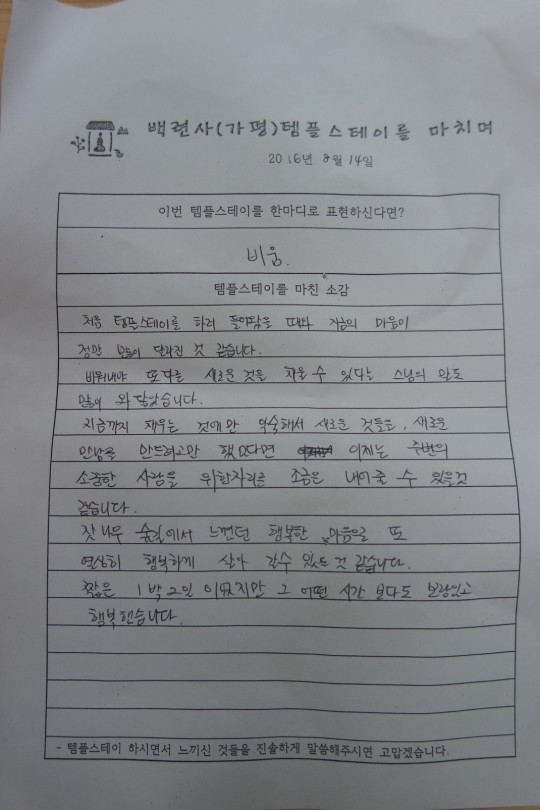 백련사(가평)템플스테이를 마치며
2016년 8월 14일
이번 템플스테이를 한마디로 표현하신다면?
비움.
템플스테이를 마친 소감
처음 템플스테이를 하러 들어왔을 때와 지금의 마음이
정말 많이 달라진 것 같습니다.
비워내야 또다른 새로운 것을 채울 수 있다는 스님의 말도
많이 와 닿았습니다.
지금까지 채우는 것에만 익숙해서 새로운 것들로, 새로운
만남을 만드려고만 했었다면 이제는 주변의
소중한 사람을 위한자리를 조금은 내어줄 수 있을것
같습니다.
잣나무 숲길에서 느꼈던 행복한 마음으로 또
열심히 행복하게 살아 갈수 있는 것 같습니다.
짧은 1박2일 이었지만 그 어떤 시간 보다도 보람있고
행복했습니다.
- 템플스테이 하시면서 느끼신 것들을 진솔하게 말씀해주시면 고맙겠습니다.